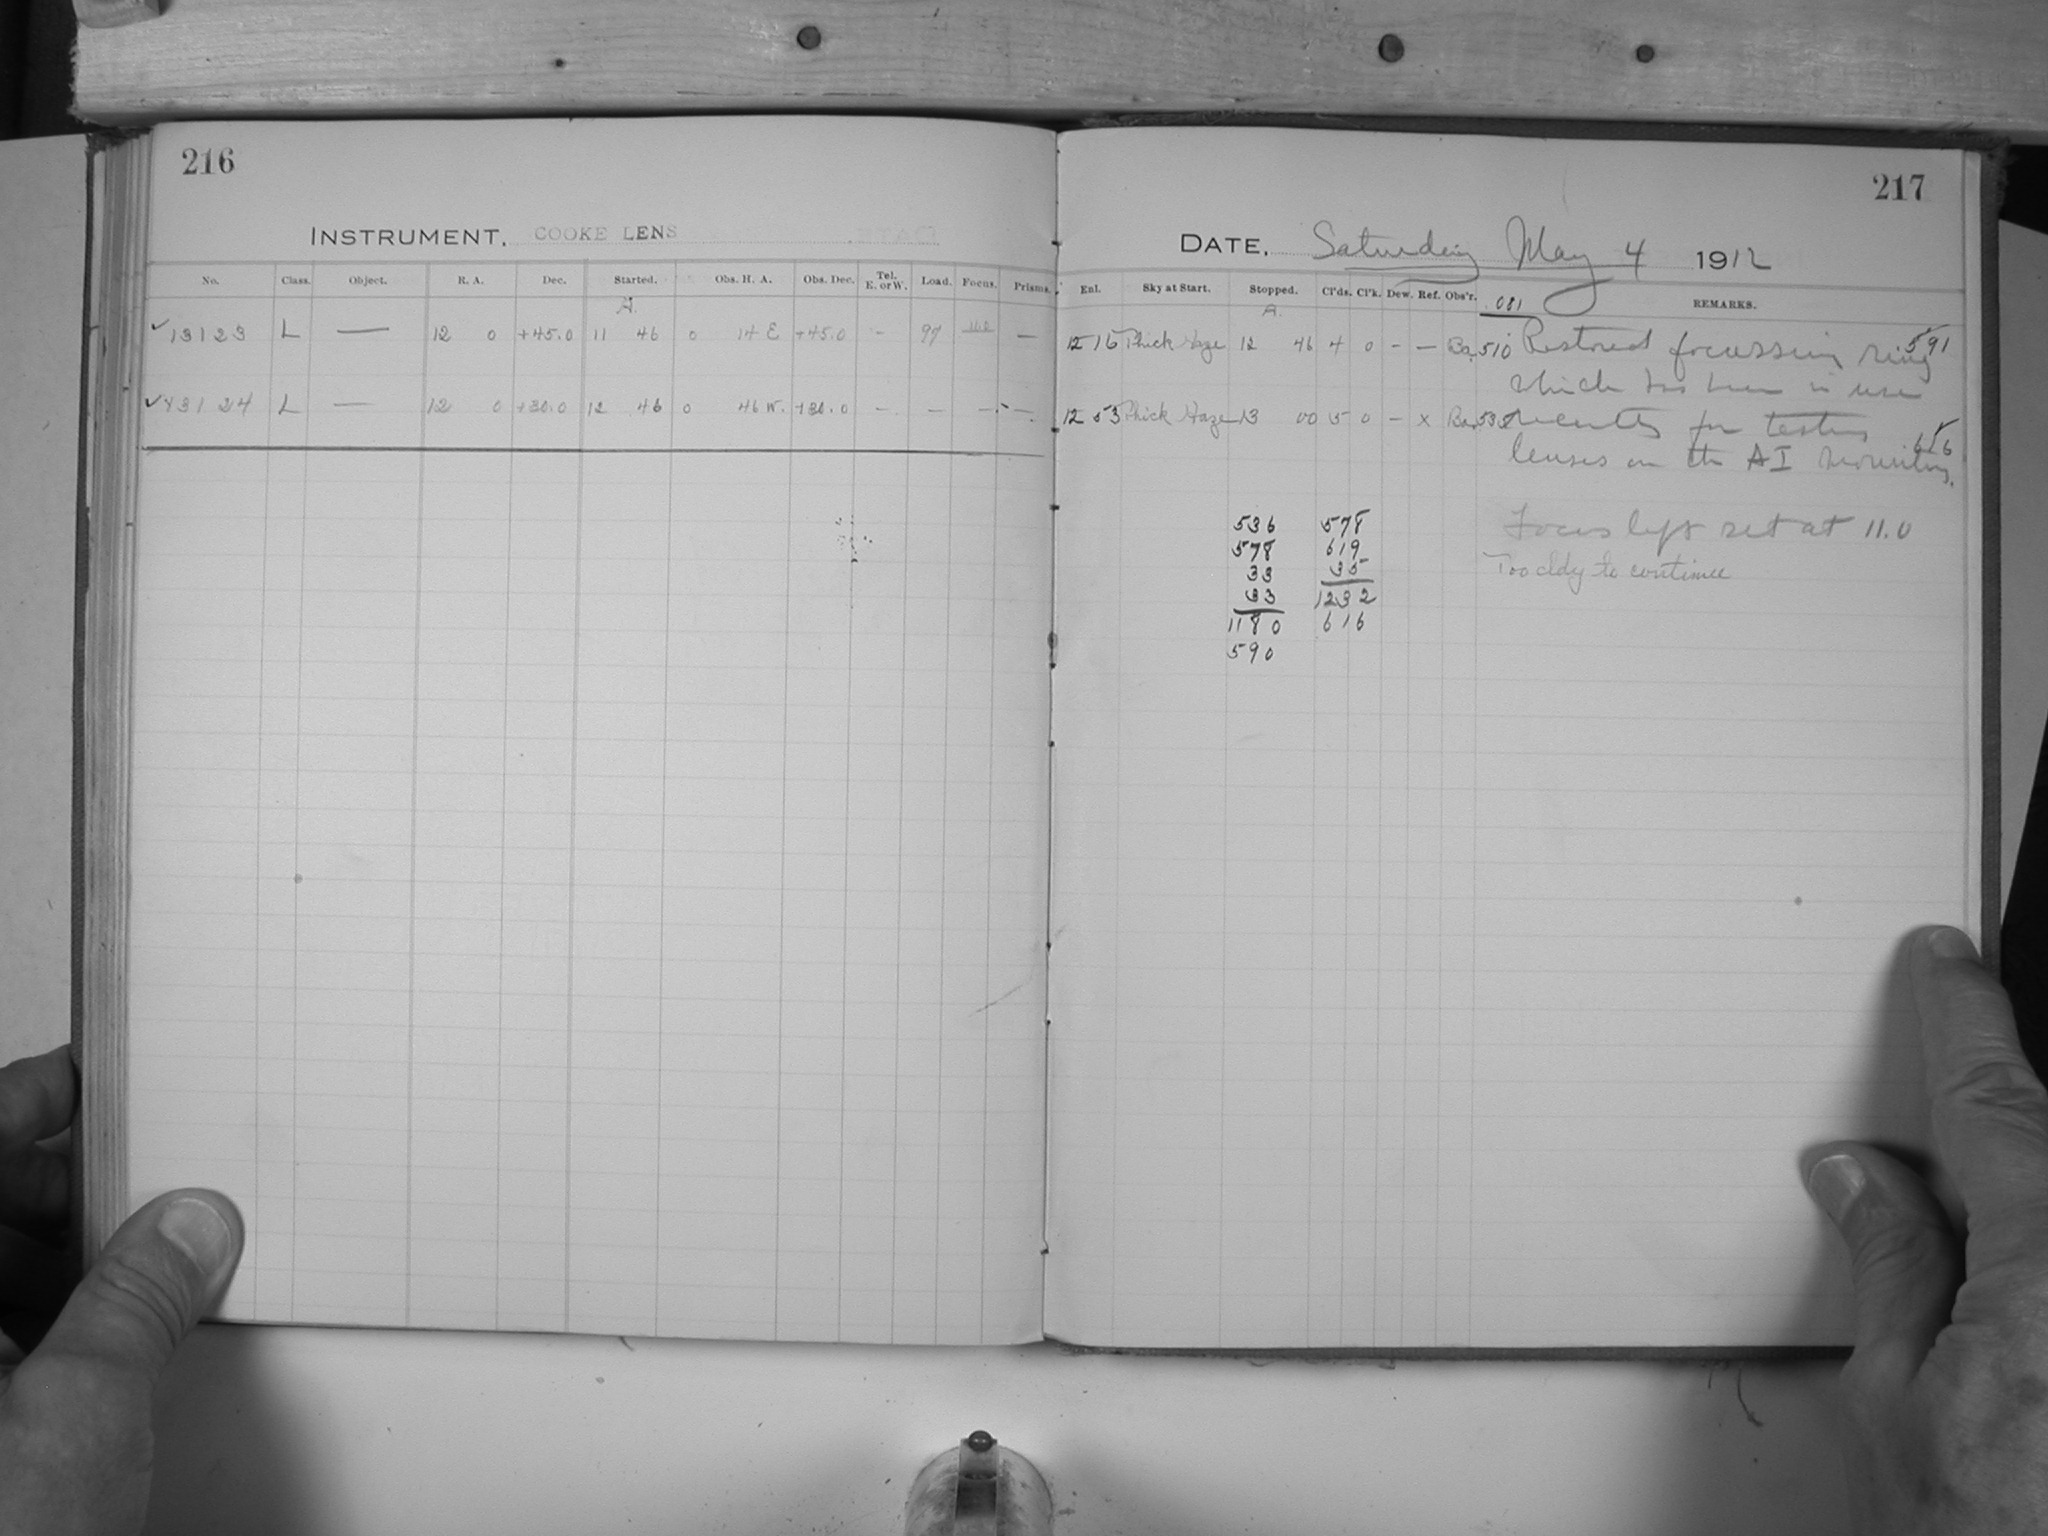 216
INSTRUMENT, COOKE LENS
No. Class. Object. R. A. Dec. Started. Obs. H. A. Obs. Dec. Tel. E. or W. Load. Focus. Prisms.
A.
✓13123 L — 12 0 +45.0 11 46 0 14 E +45.0 - 97 11.0 —
✓13124 L — 12 0 +30.0 12 46 0 46 W. +30.0 - - - -
217
DATE, Saturday May 4 1912
Enl. Sky at Start. Stopped. Cl'ds. Cl'k. Dew. Ref. Obs'r. 081 REMARKS.
A.
12 16 Thick Haze 12 46 4 0 - — Ba. 510 Restored focussing ring 591
which has been in use
12 53 Thick Haze 13 00 5 0 - x Ba. recently for testing
lenses on the AI mounting.
536 578
578 619
33 35
33 1232
1180 616
590
Focus left set at 11.0
Too cldy to continue